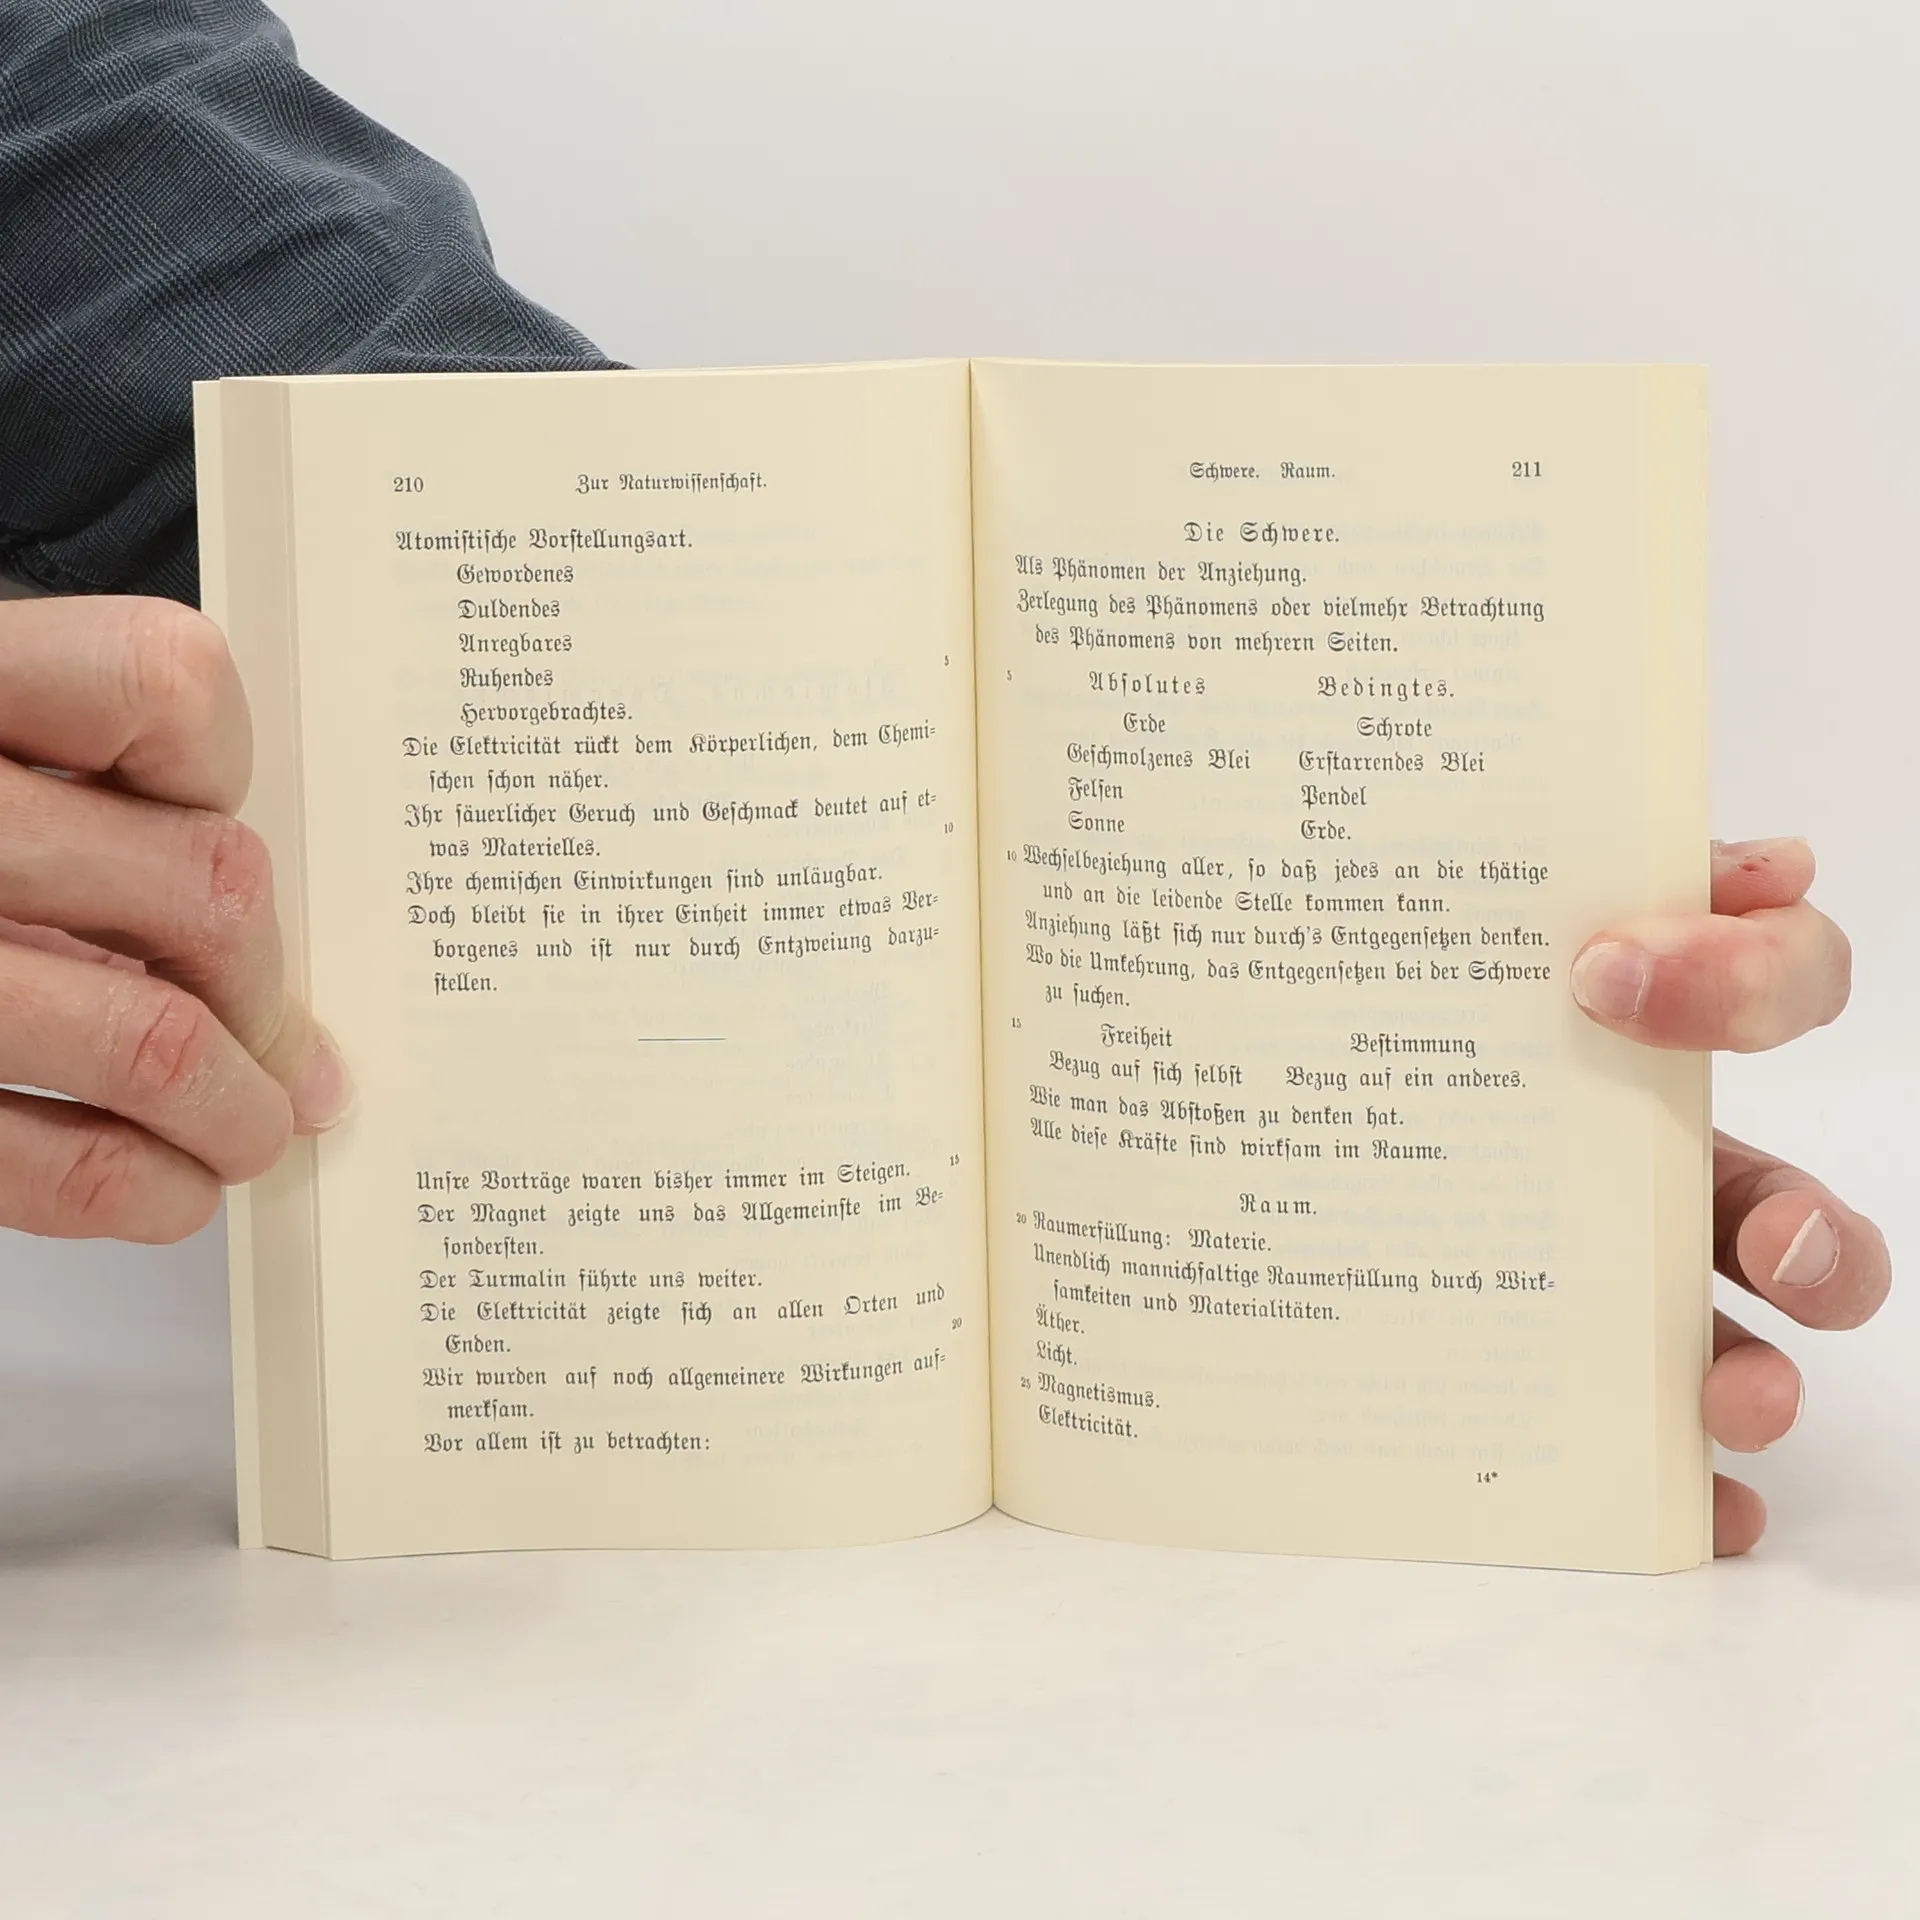 210 Zur Naturwissenschaft.
Atomistische Vorstellungsart.
Gewordenes
Duldendes
Anregbares
5
Ruhendes
Hervorgebrachtes.
Die Elektricität rückt dem Körperlichen, dem Chemi-
schen schon näher.
Ihr säuerlicher Geruch und Geschmack deutet auf et-
10
was Materielles.
Ihre chemischen Einwirkungen sind unläugbar.
Doch bleibt sie in ihrer Einheit immer etwas Ver-
borgenes und ist nur durch Entzweiung darzu-
stellen.
Unsre Vorträge waren bisher immer im Steigen. 15
Der Magnet zeigte uns das Allgemeinste im Be-
sondersten.
Der Turmalin führte uns weiter.
Die Elektricität zeigte sich an allen Orten und
20
Enden.
Wir wurden auf noch allgemeinere Wirkungen auf-
merksam.
Vor allem ist zu betrachten:
Schwere. Raum. 211
Die Schwere.
Als Phänomen der Anziehung.
Zerlegung des Phänomens oder vielmehr Betrachtung
des Phänomens von mehrern Seiten.
5 Absolutes Bedingtes.
Erde Schrote
Geschmolzenes Blei Erstarrendes Blei
Felsen Pendel
Sonne Erde.
10 Wechselbeziehung aller, so daß jedes an die thätige
und an die leidende Stelle kommen kann.
Anziehung läßt sich nur durch's Entgegensetzen denken.
Wo die Umkehrung, das Entgegensetzen bei der Schwere
zu suchen.
15 Freiheit Bestimmung
Bezug auf sich selbst Bezug auf ein anderes.
Wie man das Abstoßen zu denken hat.
Alle diese Kräfte sind wirksam im Raume.
Raum.
20 Raumerfüllung: Materie.
Unendlich mannichfaltige Raumerfüllung durch Wirk-
samkeiten und Materialitäten.
Äther.
Licht.
25 Magnetismus.
Elektricität.
14*